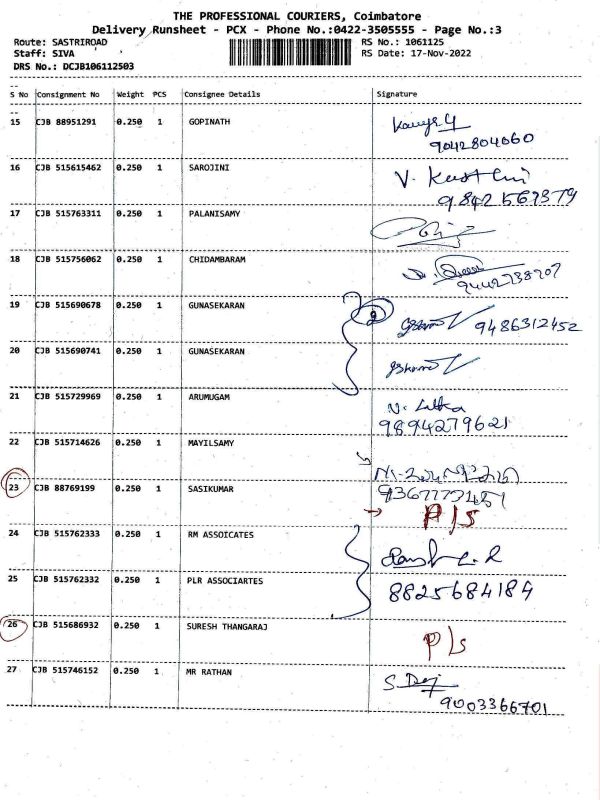 THE PROFESSIONAL COURIERS, Coimbatore
Delivery Runsheet - PCX - Phone No.:0422-3505555 - Page No.:3
Route: SASTRIROAD RS No.: 1061125
Staff: SIVA RS Date: 17-Nov-2022
DRS No.: DCJB106112503
S No Consignment No Weight PCS Consignee Details Signature
15 CJB 88951291 0.250 1 GOPINATH
9042804060
16 CJB 515615462 0.250 1 SAROJINI V.
9842567379
17 CJB 515763311 0.250 1 PALANISAMY
18 CJB 515756062 0.250 1 CHIDAMBARAM
9442738707
19 CJB 515690678 0.250 1 GUNASEKARAN 2 9486312452
20 CJB 515690741 0.250 1 GUNASEKARAN
21 CJB 515729969 0.250 1 ARUMUGAM
9894279621
22 CJB 515714626 0.250 1 MAYILSAMY
23 CJB 88769199 0.250 1 SASIKUMAR
P/s
24 CJB 515762333 0.250 1 RM ASSOICATES
25 CJB 515762332 0.250 1 PLR ASSOCIARTES 8825684184
26 CJB 515686932 0.250 1 SURESH THANGARAJ P/s
27 CJB 515746152 0.250 1 MR RATHAN
9003366701